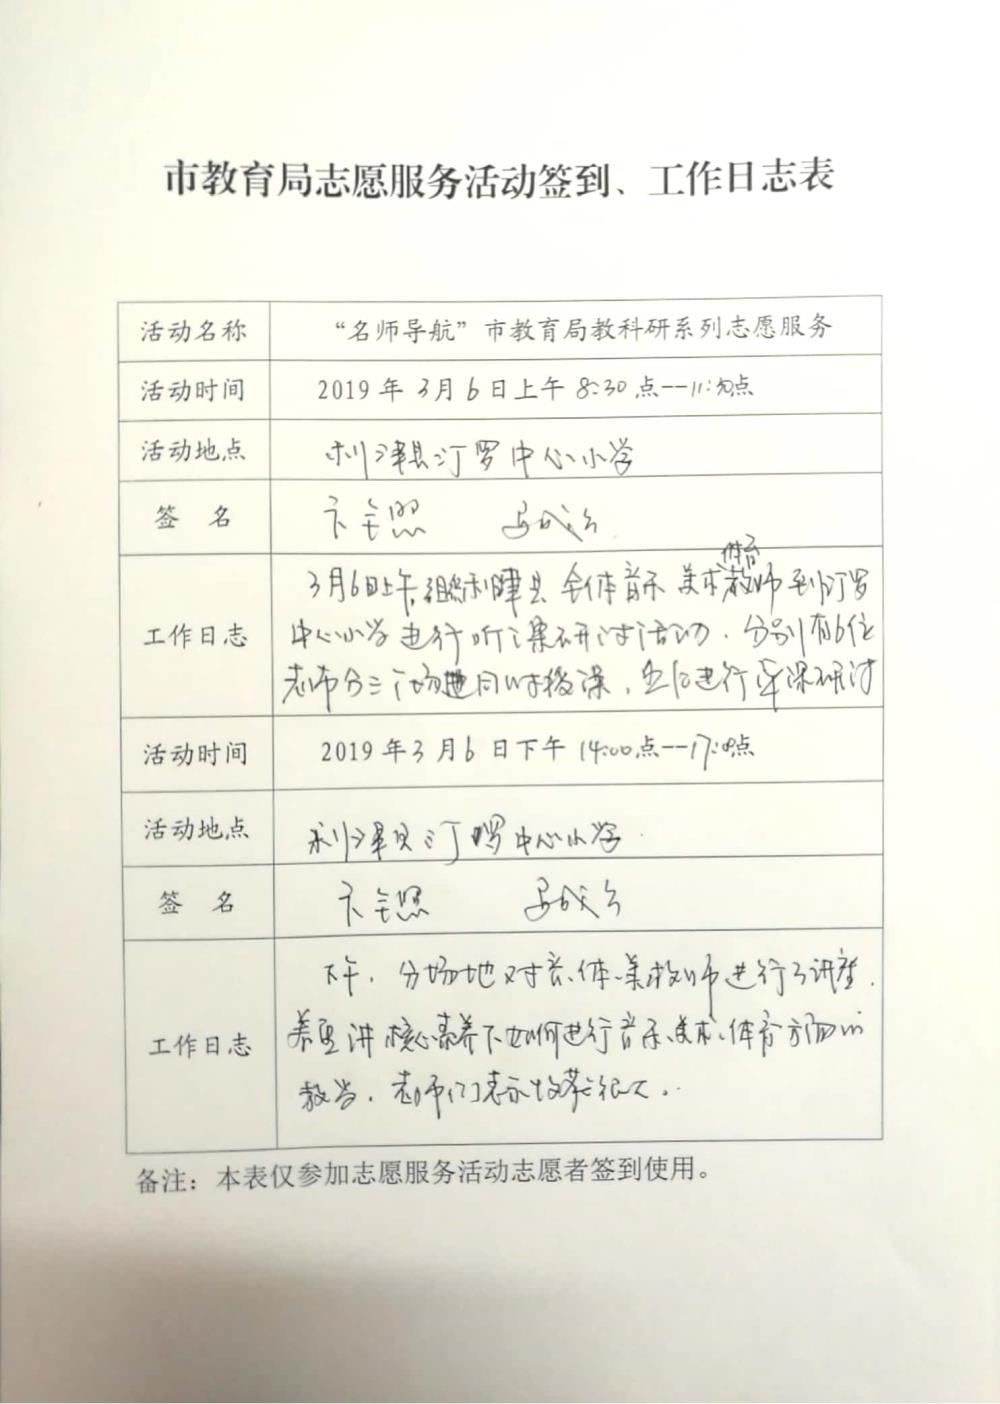 市教育局志愿服务活动签到、工作日志表
活动名称 “名师导航”市教育局教科研系列志愿服务
活动时间 2019 年 3 月 6 日上午 8:30 点--11:30点
活动地点 利津县汀罗中心小学
签 名
体育
3月6日上午,组织利津县全体音乐 美术教师到汀罗
工作日志 中心小学进行听课研讨活动,分别有6位
老师分三个场地同时授课,然后进行评课研讨
活动时间 2019 年 3 月 6 日下午 14:00点--17:00点
活动地点 利津县汀罗中心小学
签 名
下午,分场地对音、体、美教师进行了讲座,
工作日志 讲核心素养下如何进行音乐、美术、体育方面的
教学,老师们表示收获很大。
备注：本表仅参加志愿服务活动志愿者签到使用。